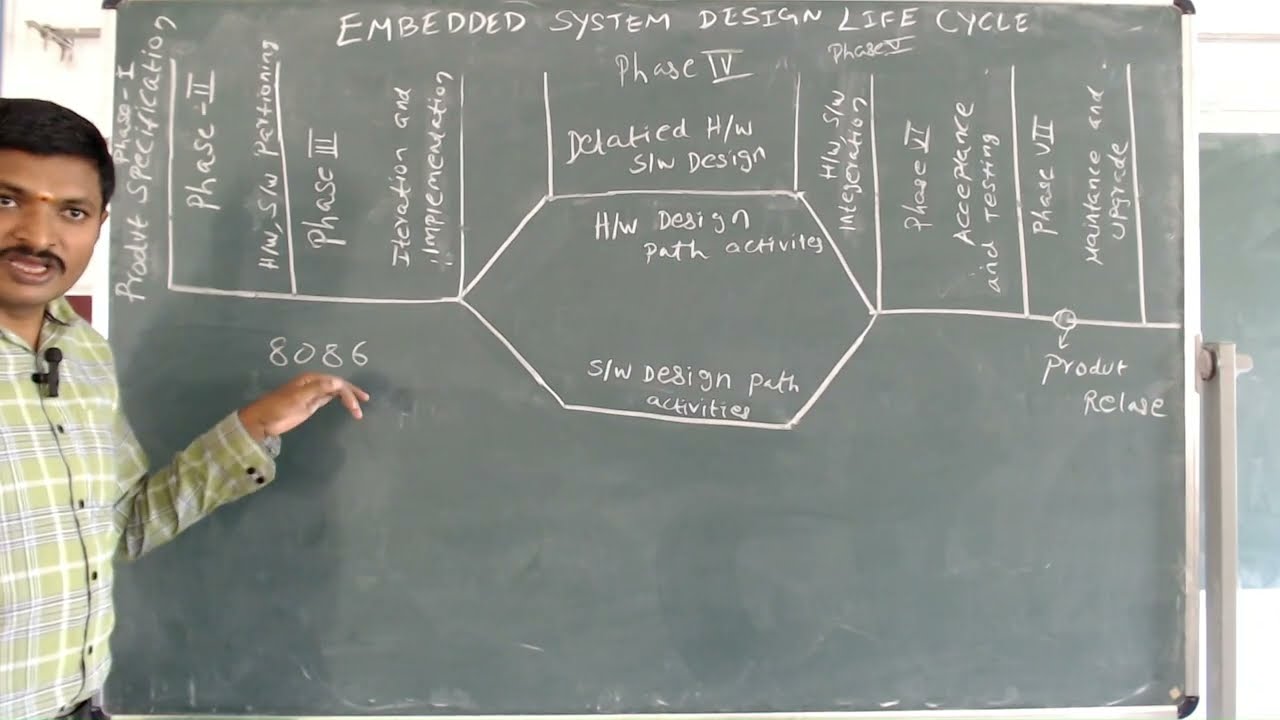 EMBEDDED SYSTEM DESIGN LIFE CYCLE
Phase-I
Produt Specification
Phase-II
H/w, S/w Partioning
Phase III
Iteration and
implementation
Phase IV
Delatied H/w
S/w Design
H/w Design
path activites
S/w Design path
activities
Phase V
H/w, S/w
Integeration
Phase VI
Acceplance
and Testing
Phase VII
Maintance and
upgrade
Produt
Relase
8086